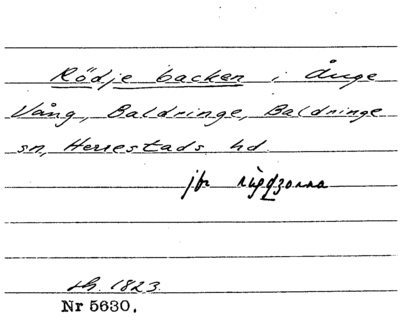 Rödje backen i Ånge
Vång, Baldringe, Baldringe
sn, Herrestads hd.
jfr
sk. 1823.
Nr 5630.